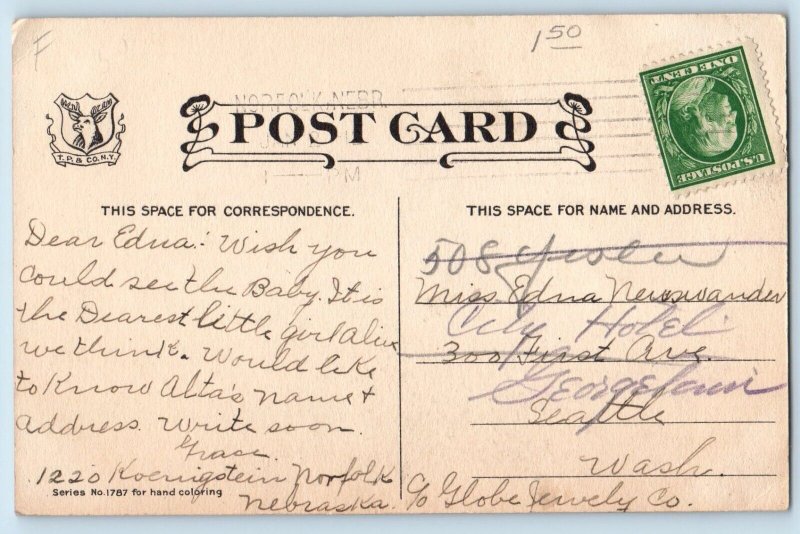 F
1 50
NORFOLK, NEBR.
1 — PM
POST CARD
U.S. POSTAGE
ONE CENT
T. P. & CO. N.Y.
THIS SPACE FOR CORRESPONDENCE.
Dear Edna: Wish you
could see the Baby. It is
the Dearest little girl alive
we think. Would like
to Know Alta's name &
address. Write soon.
Grace.
1220 Koenigstein Norfolk
Nebraska.
Series No. 1787 for hand coloring
THIS SPACE FOR NAME AND ADDRESS.
508 Yesler
Miss Edna Newswander
City Hotel
300 First Ave.
Georgetown
Seattle
Wash.
c/o Globe Jewely Co.